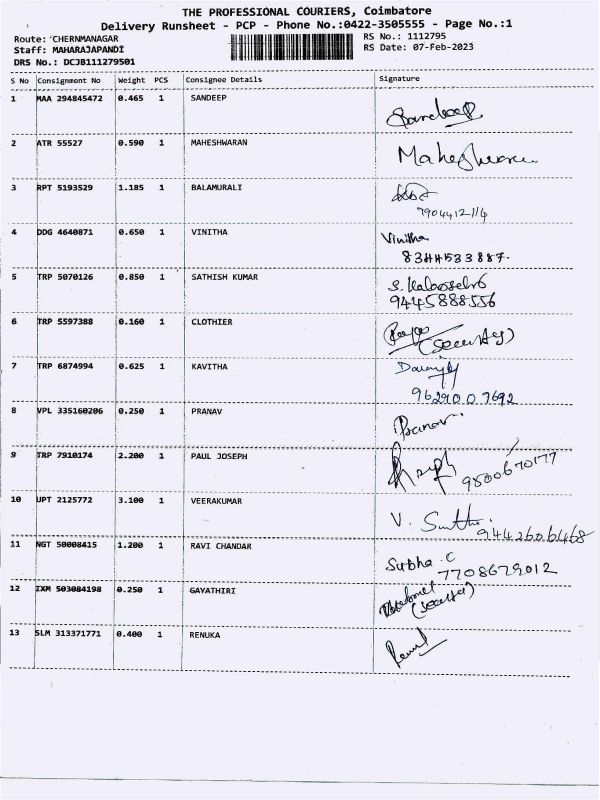 THE PROFESSIONAL COURIERS, Coimbatore
Delivery Runsheet - PCP - Phone No.:0422-3505555 - Page No.:1
Route: CHERNMANAGAR
Staff: MAHARAJAPANDI
DRS No.: DCJB111279501
RS No.: 1112795
RS Date: 07-Feb-2023
S No Consignment No Weight PCS Consignee Details Signature
1 MAA 294845472 0.465 1 SANDEEP Sandeep
2 ATR 55527 0.590 1 MAHESHWARAN Maheshwaran
3 RPT 5193529 1.185 1 BALAMURALI
7904412114
4 DDG 4640871 0.650 1 VINITHA Vinitha
8344533887.
5 TRP 5070126 0.850 1 SATHISH KUMAR S.
9445888556
6 TRP 5597388 0.160 1 CLOTHIER
(Security)
7 TRP 6874994 0.625 1 KAVITHA
9629007692
8 VPL 335160206 0.250 1 PRANAV Pranav
9 TRP 7910174 2.200 1 PAUL JOSEPH 9500670177
10 UPT 2125772 3.100 1 VEERAKUMAR V.
9442606468
11 NGT 50008415 1.200 1 RAVI CHANDAR Subha. C
7708679012
12 IXM 503084198 0.250 1 GAYATHIRI
13 SLM 313371771 0.400 1 RENUKA